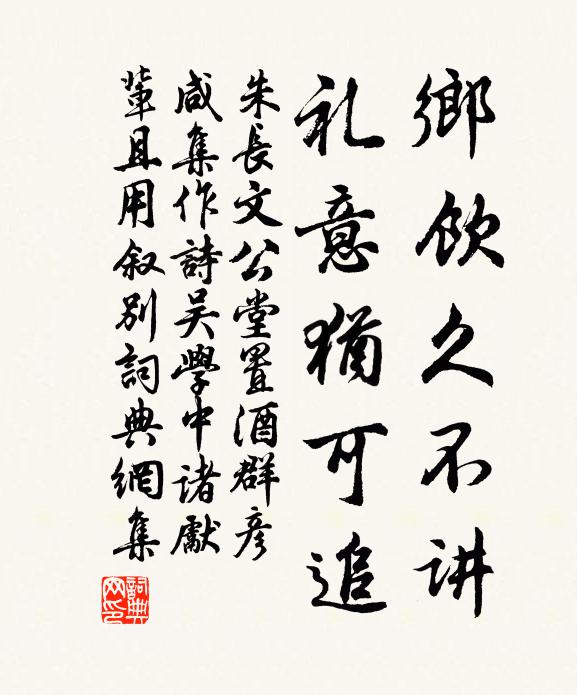 鄉飲久不讲
礼意猶可追
朱長文公堂置酒群彥
咸集作詩吴學中诸獻
輩且用叙别詞典網集
詞典网印